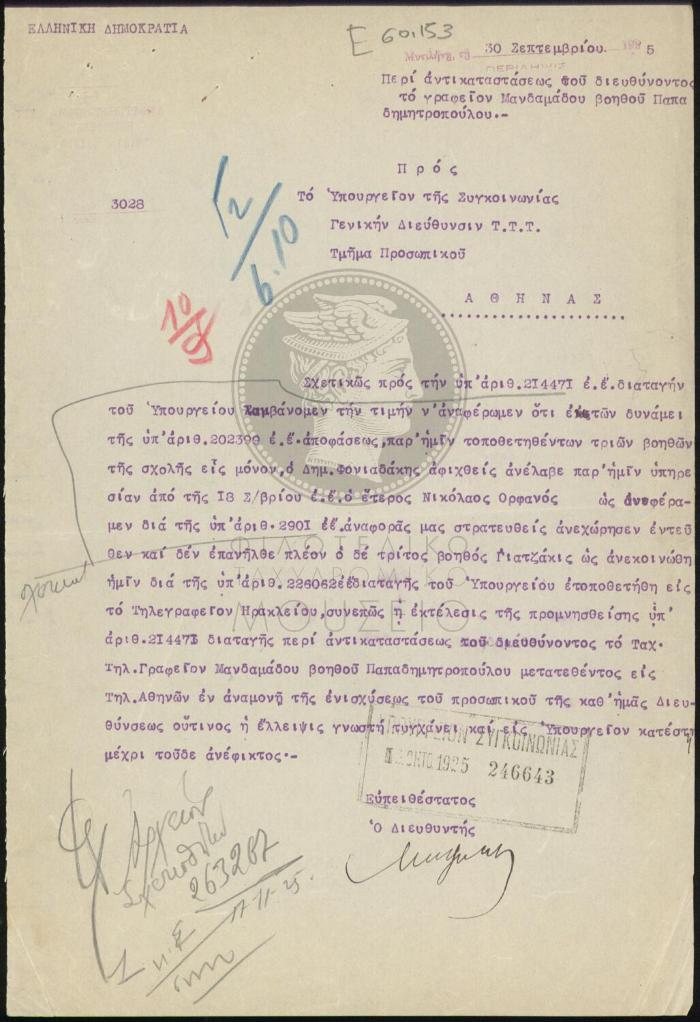 ΕΛΛΗΝΙΚΗ ΔΗΜΟΚΡΑΤΙΑ
Ε 60.153
Μυτιλήνη τῇ 30 Σεπτεμβρίου. 1925
ΠΕΡΙΛΗΨΙΣ
Περί ἀντικαταστάσεως τοῦ διευθύνοντος
τό γραφεῖον Μανδαμάδου βοηθοῦ Παπα
δημητροπούλου.-
Πρός
3028
Τό Ὑπουργεῖον τῆς Συγκοινωνίας
Γενικήν Διεύθυνσιν Τ.Τ.Τ.
Τμῆμα Προσωπικοῦ
ΑΘΗΝΑΣ
6.10
10
Σχετικῶς πρός τήν ὑπ'ἀριθ.214471 ἐ.ἔ.διαταγήν
τοῦ Ὑπουργείου λαμβάνομεν τήν τιμήν ν'ἀναφέρωμεν ὅτι ἐκ τῶν δυνάμει
τῆς ὑπ'ἀριθ.202399 ἐ.ἔ.ἀποφάσεως,παρ'ἡμῖν τοποθετηθέντων τριῶν βοηθῶν
τῆς σχολῆς εἷς μόνον,ὁ Δημ.Φονιαδάκης ἀφιχθείς ἀνέλαβε παρ'ἡμῖν ὑπηρε
σίαν ἀπό τῆς 18 Σ/βρίου ἐ.ἔ.ὁ ἕτερος Νικόλαος Ορφανός ὡς ἀνεφέρα-
μεν διά τῆς ὑπ'ἀριθ.2901 ἐἔ.ἀναφορᾶς μας στρατευθείς ἀνεχώρησεν ἐντεῦ
θεν καί δέν ἐπανῆλθε πλέον ὁ δέ τρίτος βοηθός Γιατζάκις ὡς ἀνεκοινώθη
ἡμῖν διά τῆς ὑπ'ἀριθ.226062ἐἔδιαταγῆς τοῦ Ὑπουργείου ἐτοποθετήθη εἰς
τό Τηλεγραφεῖον Ηρακλείου,συνεπῶς ἡ ἐκτέλεσις τῆς προμνησθείσης ὑπ'
ἀριθ.214471 διαταγῆς περί ἀντικαταστάσεως τοῦ διευθύνοντος τό Ταχ.
Τηλ.Γραφεῖον Μανδαμάδου βοηθοῦ Παπαδημητροπούλου μετατεθέντος εἰς
Τηλ.Αθηνῶν ἐν ἀναμονῇ τῆς ἐνισχύσεως τοῦ προσωπικοῦ τῆς καθ'ἡμᾶς Διευ-
θύνσεως οὗτινος ἡ ἔλλειψις γνωστή τυγχάνει καί εἰς Ὑπουργεῖον κατέστη
μέχρι τοῦδε ἀνέφικτος.-
ΥΠΟΥΡΓΕΙΟΝ ΣΥΓΚΟΙΝΩΝΙΑΣ
ΟΚΤΟ.1925 246643
Εὐπειθέστατος
Ὁ Διευθυντής
Ἀρχεῖον
263287
11-11-25.
ΦΙΛΟΤΕΛΙΚΟ
ΤΑΧΥΔΡΟΜΙΚΟ
ΜΟΥΣΕΙΟ